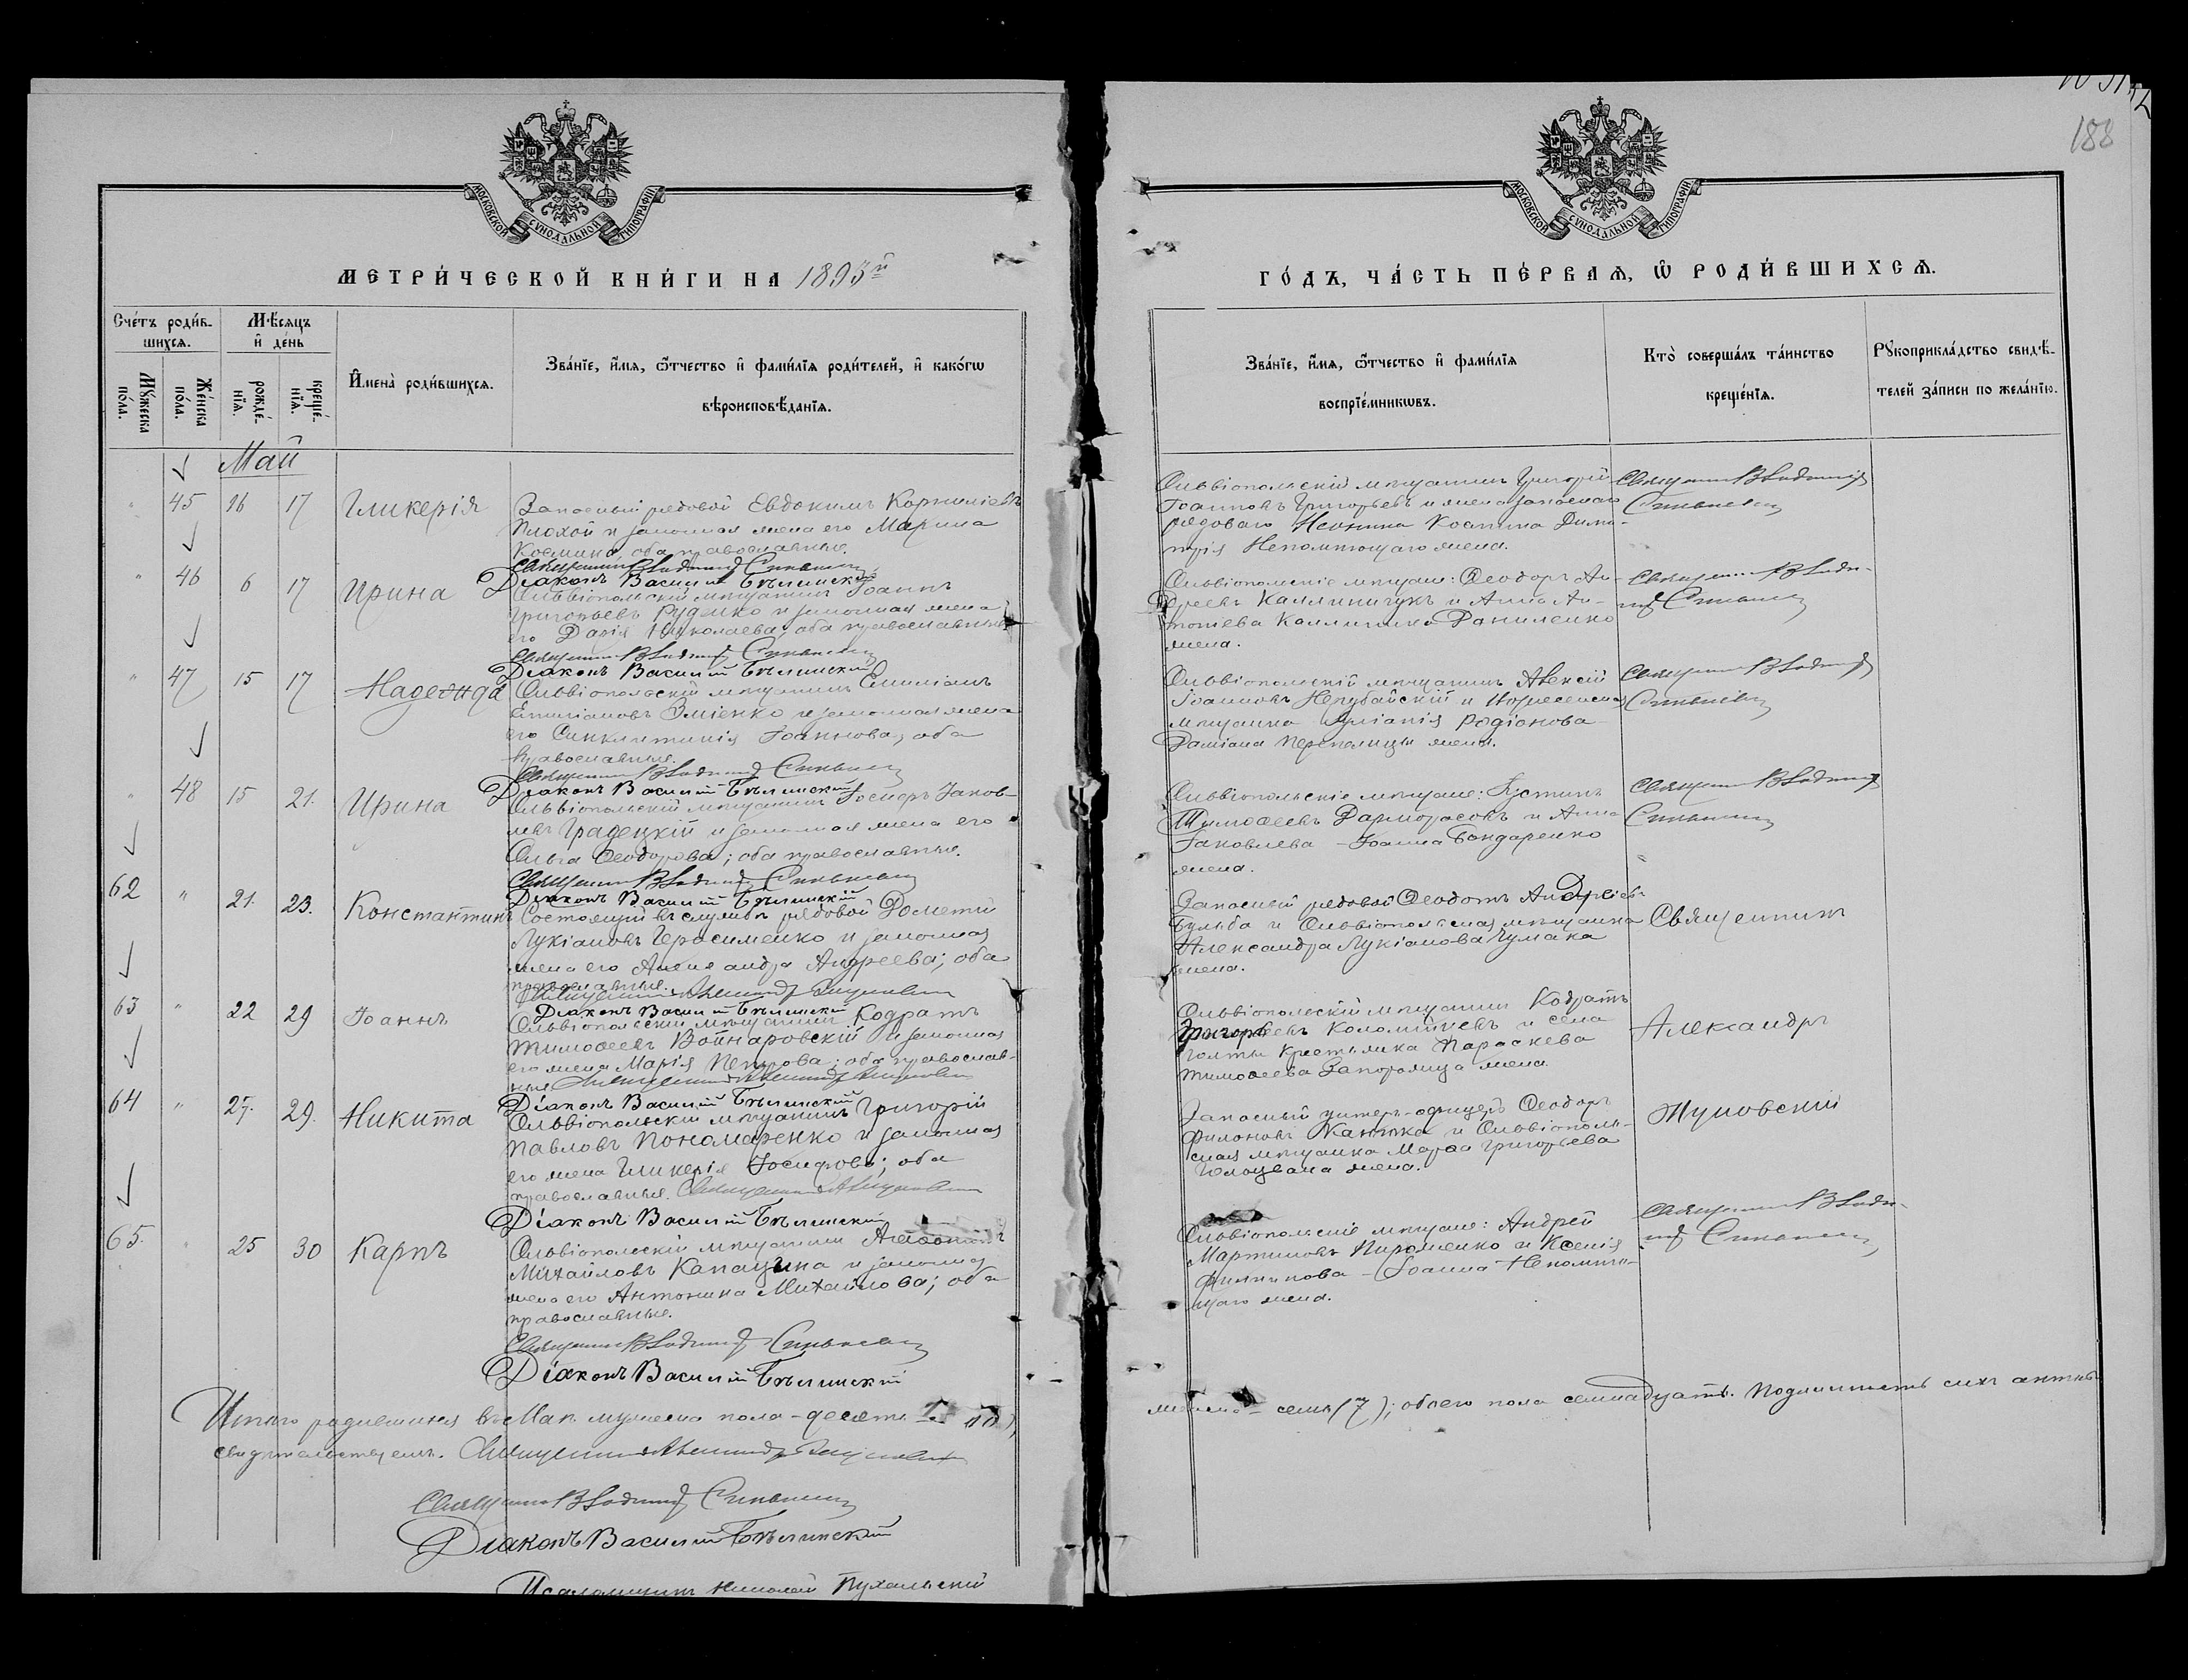 188
МОСКОВСКОЙ СУНОДАЛЬНОЙ ТИПОГРАФІИ
МЕТРИ́ЧЕСКОЙ КНИ́ГИ НА 1893й
Сче́тъ роди́в-
шихсѧ.
Мѣ́сѧцъ
и҆ де́нь
Мꙋ́жеска
по́ла.
Же́нска
по́ла.
рожде́-
нїѧ.
креще́-
нїѧ.
И҆мена̀ роди́вшихсѧ.
Зва́нїе, и҆́мѧ, ѻ҆́тчество и҆ фами́лїѧ роди́телей, и҆ како́гѡ
вѣроисповѣ́данїѧ.
Май
" 45 16 17 Гликерія
Запасный рядовой Евдокимъ Корниліевъ
Плохой и законная жена его Марина
Космина, оба православные.
Священникъ Владимір Синькевич
Діаконъ Василій Бѣлинскій
" 46 6 17 Ирина
Ольвіопольскій мѣщанинъ Іоаннъ
Григорьевъ Руденко и законная жена
его Дарія Николаева; оба православные
Священникъ Владимір Синькевич
Діаконъ Василій Бѣлинскій
" 47 15 17 Надежда
Ольвіопольскій мѣщанинъ Емиліанъ
Емиліановъ Зміенко и законная жена
его Синклитикія Іоаннова; оба
православные.
Священникъ Владимір Синькевич
Діаконъ Василій Бѣлинскій
" 48 15 21. Ирина
Ольвіопольскій мѣщанинъ Іосифъ Іаков-
левъ Градецкій и законная жена его
Ольга Ѳеодорова; оба православные.
Священникъ Владимір Синькевич
Діаконъ Василій Бѣлинскій
62 " 21. 23. Константинъ
Состоящій въ службѣ рядовой Дометій
Лукіановъ Герасименко и законная
жена его Александра Андреева; оба
православные.
Священникъ Александр Жуковскій
Діаконъ Василій Бѣлинскій
63 " 22 29 Іоаннъ
Ольвіопольскій мѣщанинъ Кодратъ
Тимоѳеевъ Войнаровскій и законная
его жена Марія Петрова; оба православ-
ные Священникъ Александр Жуковскій
Діаконъ Василій Бѣлинскій
64 " 27. 29. Никита
Ольвіопольскій мѣщанинъ Григорій
Павловъ Пономаренко и законная
его жена Гликерія Іосифова; оба
православные. Священникъ А Жуковскій
Діаконъ Василій Бѣлинскій
65. " 25 30 Карпъ
Ольвіопольскій мѣщанинъ
Михайловъ Капацына и законная
жена его Антонина Михайлова; оба
православные.
Священникъ Владимір Синькевич
Діаконъ Василій Бѣлинскій
Итого родившихся въ Маѣ мужеска пола - десять (10)
свидѣтельствуемъ. Священникъ Александр Жуковскій
Священникъ Владимір Синькевич
Діаконъ Василій Бѣлинскій
Псаломщикъ Николай Пухальскій
МОСКОВСКОЙ СУНОДАЛЬНОЙ ТИПОГРАФІИ
ГО́ДЪ, ЧА́СТЬ ПЕ́РВАѦ, Ѽ РОДИ́ВШИХСѦ.
Зва́нїе, и҆́мѧ, ѻ҆́тчество и҆ фами́лїѧ
воспрїе́мникѡвъ.
Кто̀ соверша́лъ та́инство
креще́нїѧ.
Рꙋкоприкла́дство свидѣ́-
телей за́писи по жела́нїю.
Ольвіопольскій мѣщанинъ Григорій
Іоанновъ Григорьевъ и жена запаснаго
рядоваго Неонила Космина Дими-
трія Непомнющаго жена.
Священникъ Владимір
Синькевич
Ольвіопольскіе мѣщане: Ѳеодоръ Ан-
дреевъ Каллиничукъ и Анна Ан-
тоніева Каллиника Даниленко
жена.
Священникъ Влади-
мір Синькевич
Ольвіопольскій мѣщанинъ Алексій
Іоанновъ Нерубайскій и
мѣщанка Іуліанія Родіонова
Даміана Перепелицы жена.
Священникъ Владимір
Синькевич
Ольвіопольскіе мѣщане: Іустинъ
Тимоѳеевъ Дарморасовъ и Анна
Іаковлева - Іоанна Бондаренко
жена.
Священникъ Владимір
Синькевич
Запасный рядовой Ѳеодотъ Андреевъ
Бульба и Ольвіопольская мѣщанка
Александра Лукіанова Чумака
жена.
Священникъ
Ольвіопольскій мѣщанинъ Кодратъ
Григорьевъ Коломійчевъ и села
Голты крестьянка Параскева
Тимоѳеева Запорожца жена.
Александръ
Запасный унтеръ-офицеръ Ѳеодоръ
Филоновъ и Ольвіополь-
ская мѣщанка Марѳа Григорьева
Голоцвана жена.
Жуковскій
Ольвіопольскіе мѣщане: Андрей
Мартиновъ Пироженко и Ксенія
Филиппова - Іоанна Непомню-
щаго жена.
Священникъ Влади-
мір Синькевич
женска - семь (7); обоего пола семнадцать. Подлинность сихъ актовъ